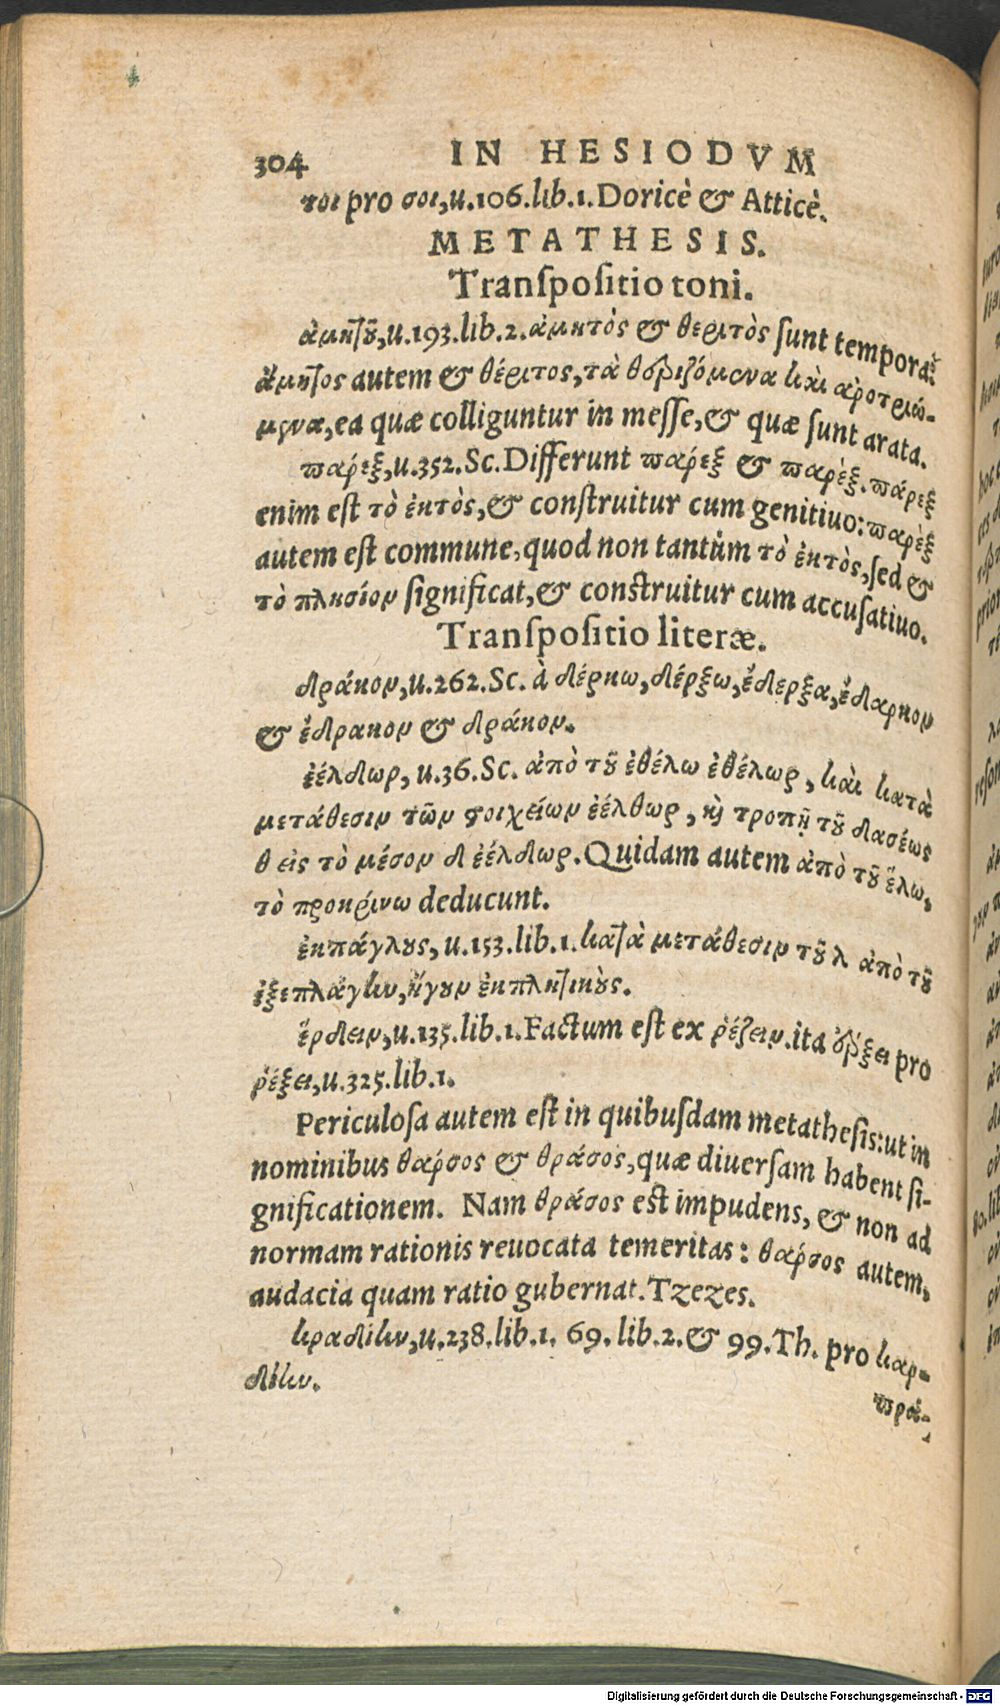 304 IN HESIODVM
τοι pro σοι, u.106.lib.1. Doricè & Atticè.
METATHESIS.
Transpositio toni.
ἀμητοῦ, u.193.lib.2. ἀμητὸς & θεριτὸς sunt tempora:
ἄμητος autem & θέριτος, τὰ θεριζόμενα καὶ ἀροτριώ-
μενα, ea quæ colliguntur in messe, & quæ sunt arata.
παρέξ, u.352. Sc. Differunt παρέξ & παρὲξ. πάρεξ
enim est τὸ ἐκτὸς, & construitur cum genitiuo: παρὲξ
autem est commune, quod non tantùm τὸ ἐκτὸς, sed &
τὸ πλησίον significat, & construitur cum accusatiuo.
Transpositio literæ.
δράκον, u.262. Sc. à δέρκω, δέρξω, ἔδερξα, ἔδαρκον
& ἔδρακον & δράκον.
ἐέλδωρ, u.36. Sc. ἀπὸ τοῦ ἐθέλω ἐθέλωρ, καὶ κατὰ
μετάθεσιν τῶν στοιχείων ἐέλθωρ, καὶ τροπῇ τοῦ δασέως
θ εἰς τὸ μέσον δ ἐέλδωρ. Quidam autem ἀπὸ τοῦ ἕλω,
τὸ προκρίνω deducunt.
ἐκπάγλους, u.153.lib.1. κατὰ μετάθεσιν τοῦ λ ἀπὸ τοῦ
ἐξεπλάγην, ἤγουν ἐκπληκτικοὺς.
ἔρδειν, u.135.lib.1. Factum est ex ῥέζειν. ita ἔρξει pro
ῥέξει, u.325.lib.1.
Periculosa autem est in quibusdam metathesis: ut in
nominibus θαρσος & θράσος, quæ diuersam habent si-
gnificationem. Nam θράσος est impudens, & non ad
normam rationis reuocata temeritas: θαρσος autem,
audacia quam ratio gubernat. Tzezes.
κραδίην, u.238.lib.1. 69.lib.2. & 99. Th. pro καρ-
δίην.
πρα-
Digitalisierung gefördert durch die Deutsche Forschungsgemeinschaft - DFG